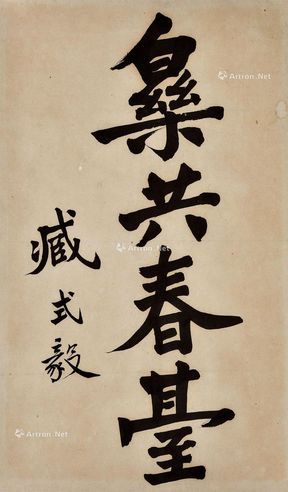 樂共春臺
臧式毅
Artron.Net
Artron.Net
Artron.Net
Artron.Net